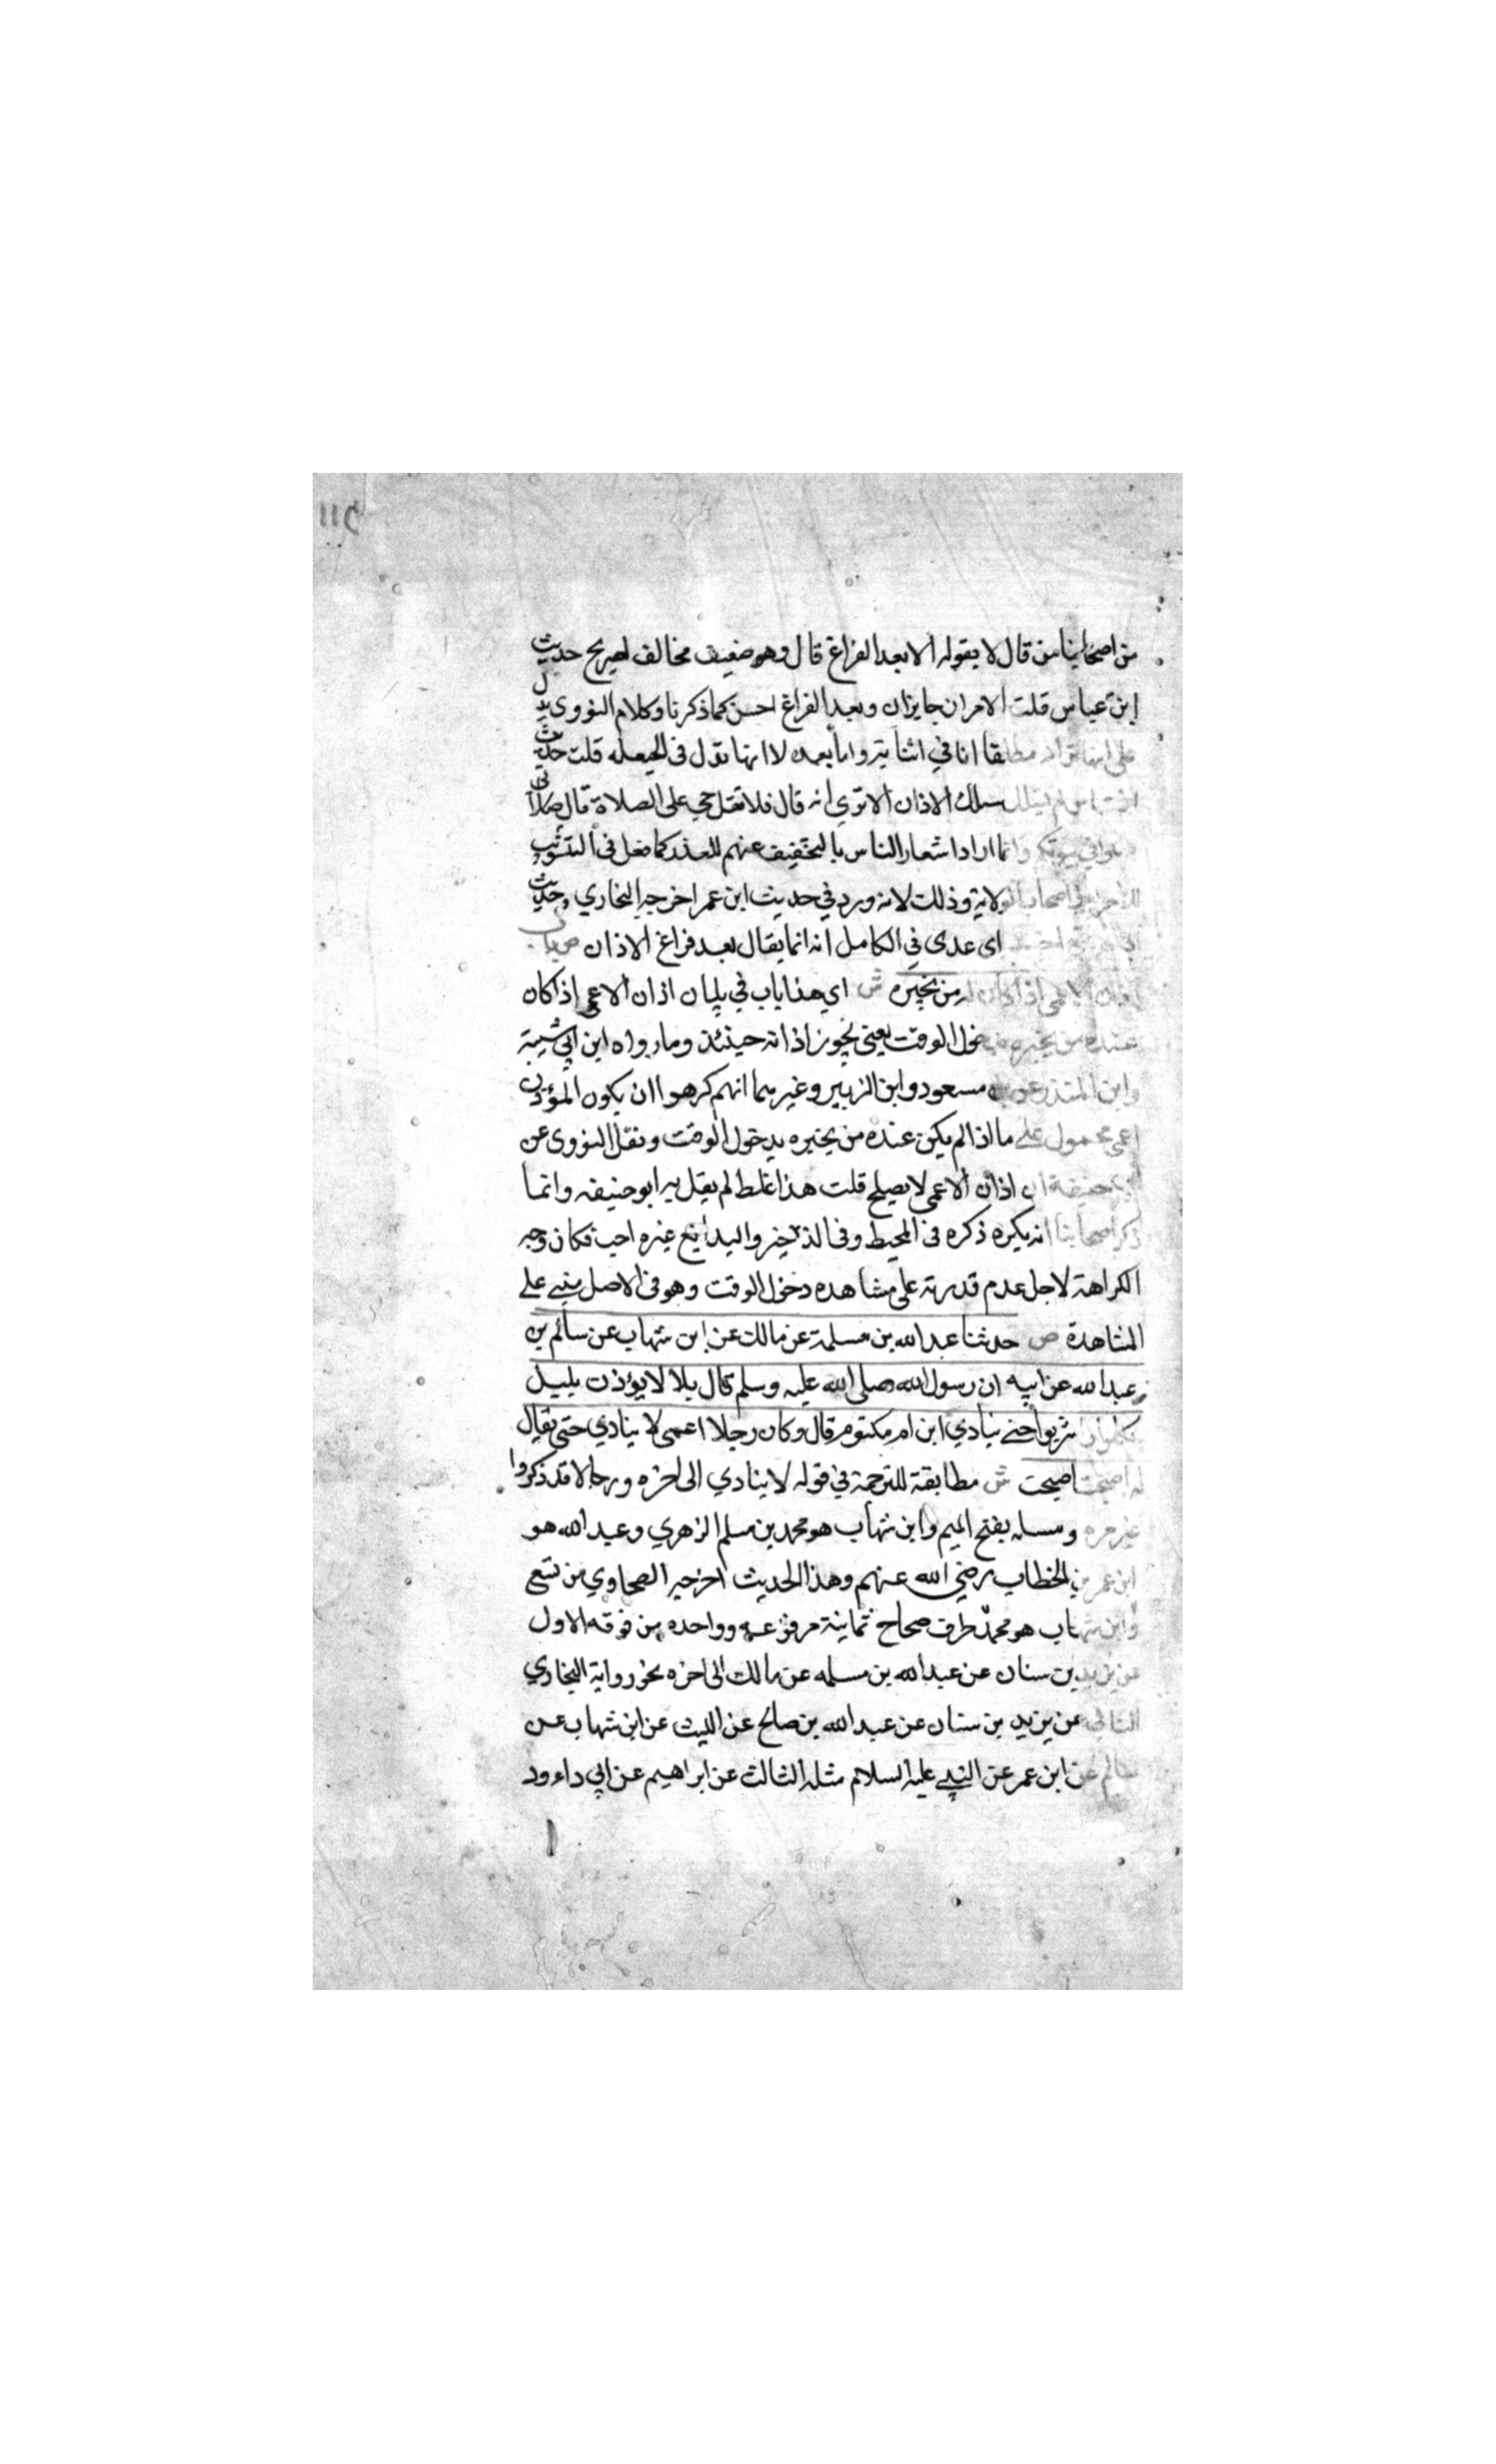 من اصحابنا من قال لا يقوله الا بعد الفراغ قال وهو ضعيف مخالف لصريح حديث
ابن عباس قلت الامران جايزان وبعد الفراغ احسن كما ذكرنا وكلام النووي يدل
على انها تزاد مطلقا اما في اثنايه واما بعده لا انها بدل في الحيعله قلت حديث
ابن عباس لم يسلك مسلك الاذان الا تري انه قال فلا تقل حي على الصلاة قال
صلوا في بيوتكم وانما اراد اشعار الناس بالتخفيف عنهم للعذر كما فعل في التثويب
للامرا واصحاب الولاية وذلك لانه ورد في حديث ابن عمر اخرجه البخاري وحديث
اى عدى في الكامل انه انما يقال بعد فراغ الاذان ص باب
اذان الاعمى اذا كان له من يخبره ش اي هذا باب في بيان اذان الاعمى اذا كان
عنده من يخبره بدخول الوقت يعني يجوز اذانه حينئذ وما رواه ابن ابي شيبة
وابن المنذر عن ابن مسعود وابن الزبير وغيرهما انهم كرهوا ان يكون المؤذن
اعمى محمول على ما اذا لم يكن عنده من يخبره بدخول الوقت ونقل النووى عن
ابي حنيفة ان اذان الاعمى لا يصلح قلت هذا غلط لم يقل به ابو حنيفه وانما
ذكر اصحابنا انه يكره ذكره في المحيط وفي الذخيره والبدايع غيره احب فكان وجه
الكراهة لاجل عدم قدرته على مشاهده دخول الوقت وهو في الاصل مبني على
المشاهدة ص حدثنا عبد الله بن مسلمة عن مالك عن ابن شهاب عن سالم بن
عبد الله عن ابيه ان رسول الله صلى الله عليه وسلم قال بلالا يؤذن بليل
فكلوا واشربوا حتى ينادي ابن ام مكتوم قال وكان رجلا اعمى لا ينادي حتى يقال
له اصبحت اصبحت ش مطابقة للترجمة في قوله لا ينادي الى اخره ورجاله قد ذكروا
غير مره ومسلمه بفتح الميم وابن شهاب هو محمد بن مسلم الزهري وعبد الله هو
ابن عمر بن الخطاب رضي الله عنهم وهذا الحديث اخرجه الصحاوي من تسع
وابن شهاب هو محمد طرق صحاح ثمانية مرفوعه وواحده من فوقه الاول
عن يزيد بن سنان عن عبد الله بن مسلمه عن مالك الى اخره نحو رواية البخاري
الثاني عن يزيد بن سنان عن عبد الله بن صالح عن الليث عن ابن شهاب عن
سالم عن ابن عمر عن النبي عليه السلام مثله الثالث عن ابراهيم عن ابي داءود